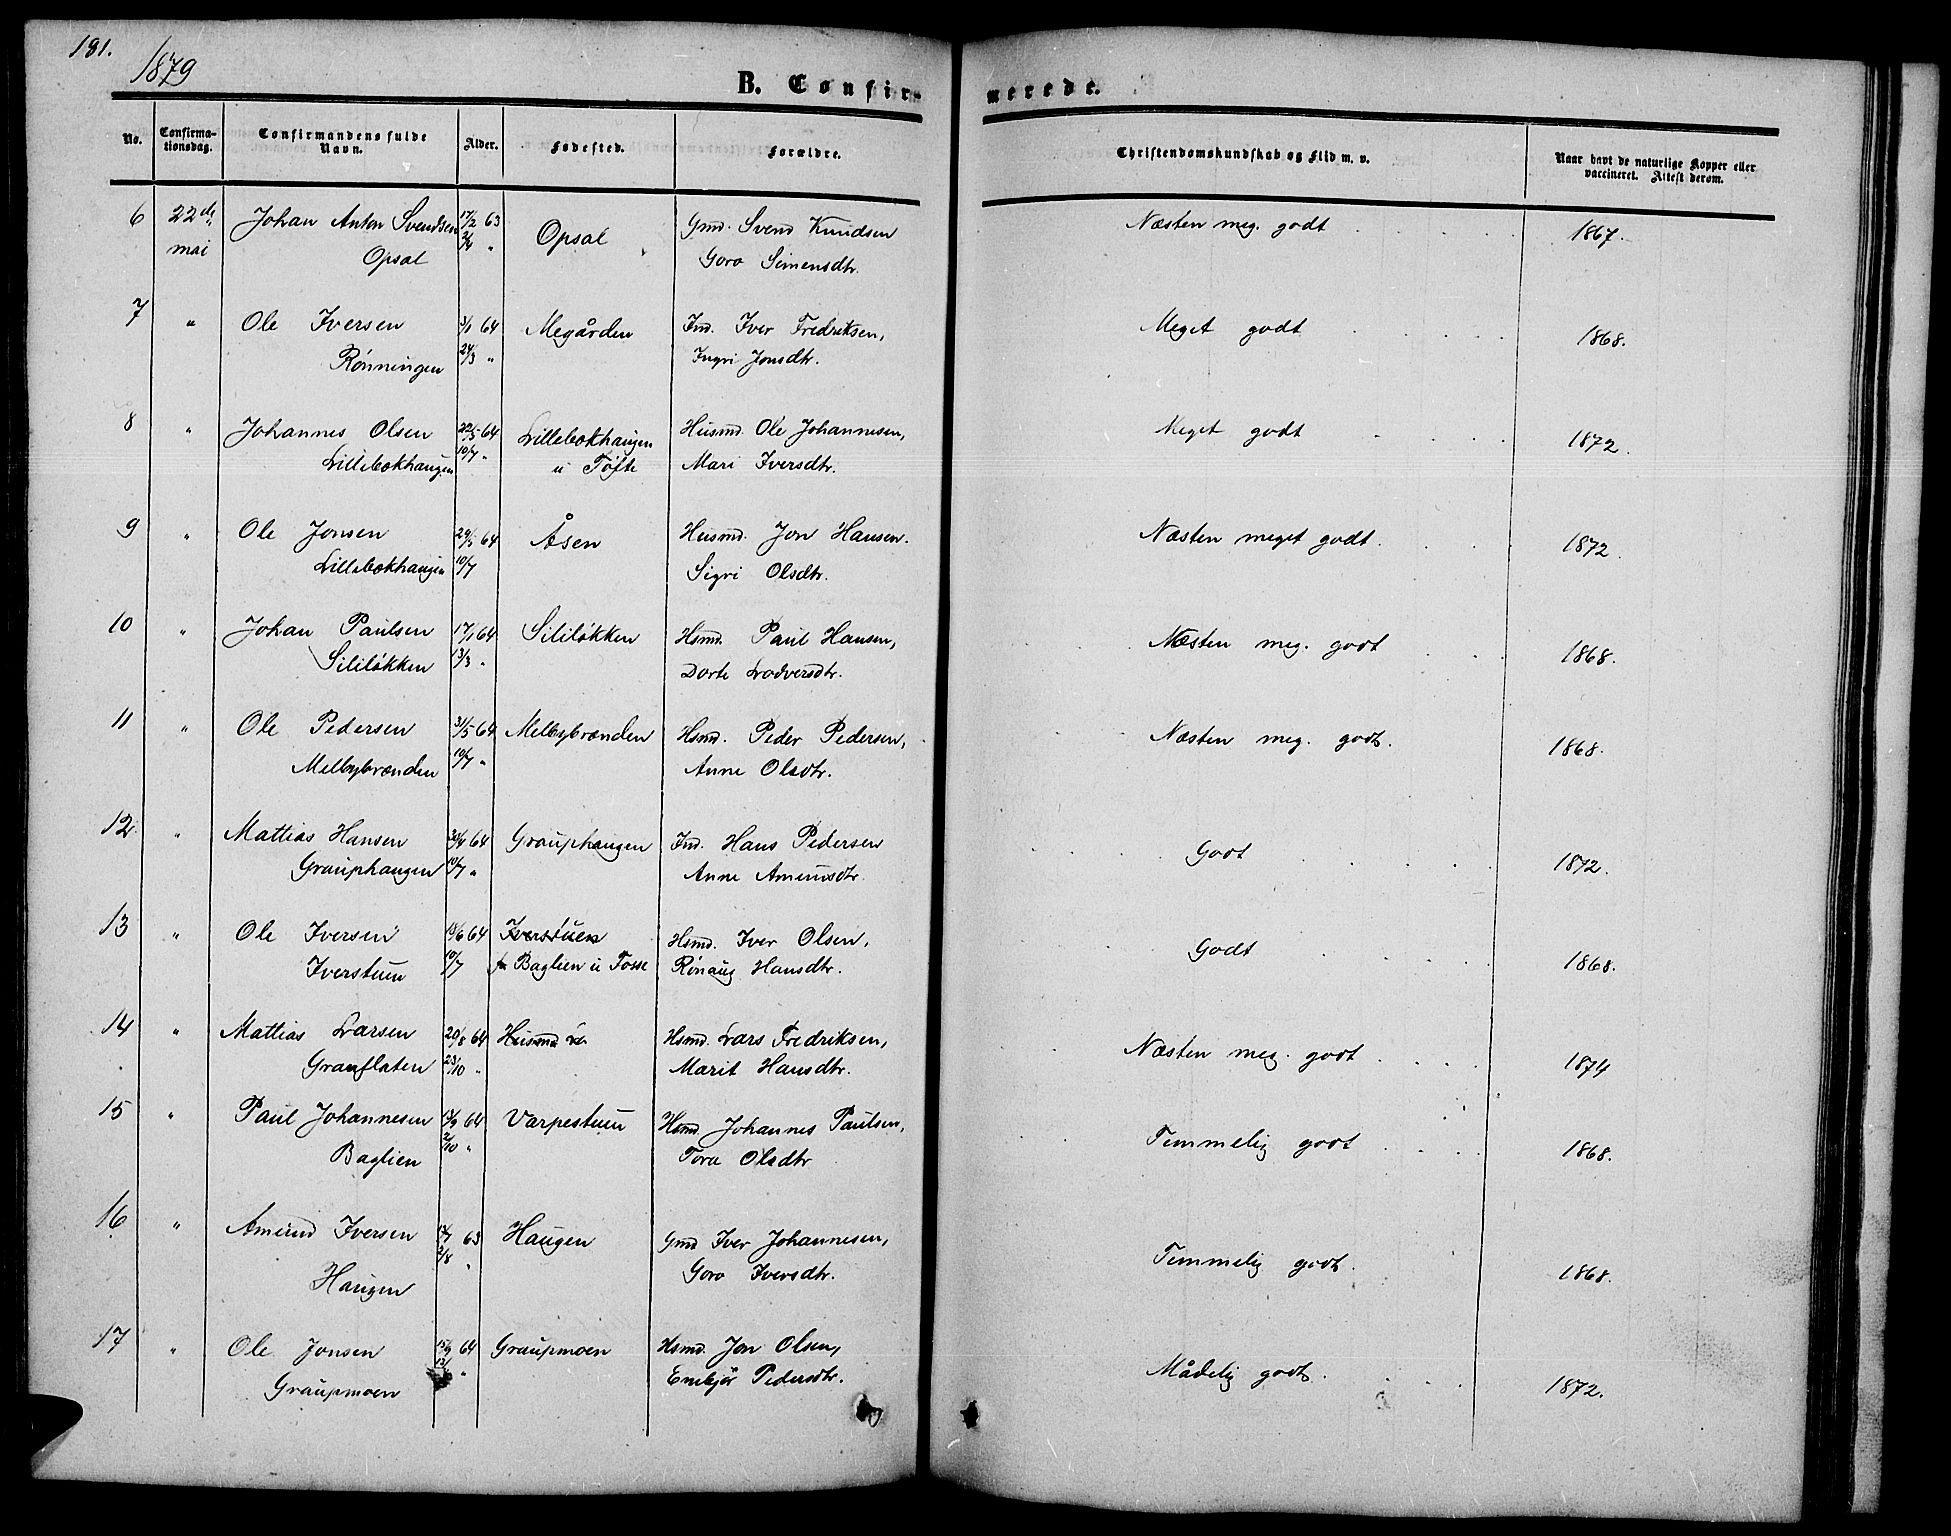 181.
1879
B. Confirmerede.
No.
Confirmationsdag.
Confirmandens fulde Navn.
Alder.
Fødested.
Forældre.
Christendomskundskab og Flid m. v.
Naar havt de naturlige Kopper eller vaccineret. Attest derom.
6 22de Johan Anton Svendsen 17/2 63 Opsal Gmd. Svend Knudsen Næsten meg. godt 1867.
mai Opsal Goro Simensdtr.
7 " Ole Iversen 3/1 64 Megården Ind. Iver Fredriksen, Meget godt 1868.
Rønningen 24/3 " Ingri Jonsdtr.
8 " Johannes Olsen 22/5 64 Lillebækhaugen Husmd. Ole Johannesen, Meget godt 1872.
Lillebækhaugen 10/7 " u Tofte Mari Iversdtr.
9 " Ole Jonsen 29/5 64 Åsen Husmd. Jon Hansen. Næsten meget godt. 1872
Lillebækhaugen 10/7 Sigri Olsdtr.
10 " Johan Paulsen 17/1 64 Sililøkken Hsmd. Paul Hansen, Næsten meg. godt 1868.
Sililøkken 13/3 " Dorte Lodversdtr.
11 " Ole Pedersen 31/5 64 Melbybrænden Hsmd. Peder Pedersen, Næsten meg. godt. 1868.
Melbybrænden 10/7 " Anne Olsdtr.
12. " Mattias Hansen 30/4 64 Grauphaugen Ind. Hans Pedersen Godt 1872.
Grauphaugen 10/7 " Anne Amunsdtr.
13 " Ole Iversen 18/6 64 Iverstuen Hsmd. Iver Olsen, Godt 1868.
Iverstuen 10/7 Baglien u Fosse Rønaug Hansdtr.
14 " Mattias Larsen 20/8 64 Husmd Hsmd. Lars Fredriksen, Næsten meg. godt 1874
Granflaten 23/10 " Marit Hansdtr.
15 " Paul Johannesen 13/9 64 Varpestuen Hsmd. Johannes Paulsen, Temmelig godt 1868.
Baglien 2/10 " Tora Olsdtr
16 " Amund Iversen 63 Haugen Gmd Iver Johannesen, Temmelig godt. 1868.
Haugen 2/8 " Goro Iversdtr.
17 " Ole Jonsen 15/9 64 Graupmoen Hsmd. Jon Olsen, Mådelig godt. 1872.
Graupmoen " Enebjør Pedersdtr.